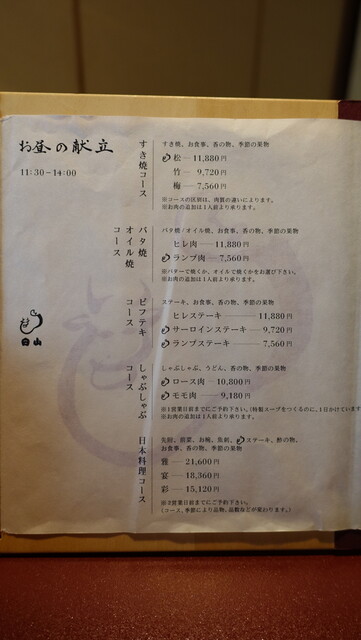 お昼の献立
11:30-14:00
すき焼コース
すき焼、お食事、香の物、季節の果物
松 ― 11,880円
竹 ― 9,720円
梅 ― 7,560円
※コースの区別は、肉質の違いによります。
※お肉の追加は1人前より承ります。
バタ焼
オイル焼
コース
バタ焼/オイル焼、お食事、香の物、季節の果物
ヒレ肉 ― 11,880円
ランプ肉 ― 7,560円
※バターで焼くか、オイルで焼くかをお選び下さい。
※お肉の追加は1人前より承ります。
ビフテキ
コース
ステーキ、お食事、香の物、季節の果物
ヒレステーキ ― 11,880円
サーロインステーキ ― 9,720円
ランプステーキ ― 7,560円
しゃぶしゃぶ
コース
しゃぶしゃぶ、うどん、香の物、季節の果物
ロース肉 ― 10,800円
モモ肉 ― 9,180円
※1営業日前までにご予約下さい。(特製スープをつくるのに、1日かけています
※お肉の追加は1人前より承ります。
日本料理コース
先附、前菜、お椀、魚刺、ステーキ、酢の物、
お食事、香の物、季節の果物
雅 ― 21,600円
宴 ― 18,360円
彩 ― 15,120円
※2営業日前までにご予約下さい。
(コース、季節により品物、品数などが変わります。)
白山